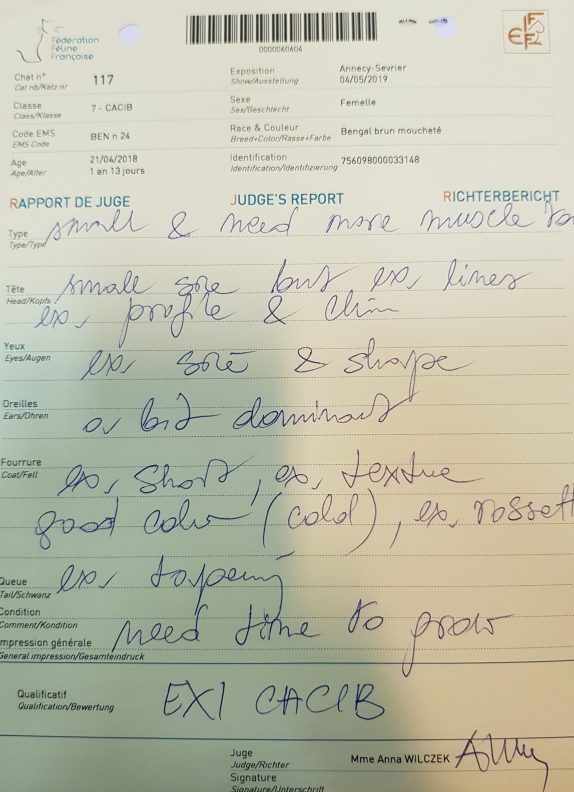 Fédération
Féline
Française
0000060604
FIFe
Chat n° 117 Exposition Annecy-Sevrier
Cat nb/Katz nr Show/Ausstellung 04/05/2019
Classe 7 - CACIB Sexe Femelle
Class/Klasse Sex/Geschlecht
Code EMS BEN n 24 Race & Couleur Bengal brun moucheté
EMS Code Breed+Color/Rasse+Farbe
Age 21/04/2018 Identification 756098000033148
Age/Alter 1 an 13 jours Identification/Identifizierung
RAPPORT DE JUGE JUDGE'S REPORT RICHTERBERICHT
Type small & need more muscle
Type/Type
Tête small size but ex, lines
Head/Kopfs ex, profile & chin
Yeux
Eyes/Augen ex, size & shape
Oreilles
Ears/Ohren a bit dominant
Fourrure
Coat/Fell ex, short, ex, textue
good color (cold), ex, rossett
Queue ex, tapering
Tail/Schwanz
Condition
Comment/Kondition need time to grow
Impression générale
General impression/Gesamteindruck
Qualificatif EX1 CACIB
Qualification/Bewertung
Juge Mme Anna WILCZEK
Judge/Richter
Signature
Signature/Unterschrift